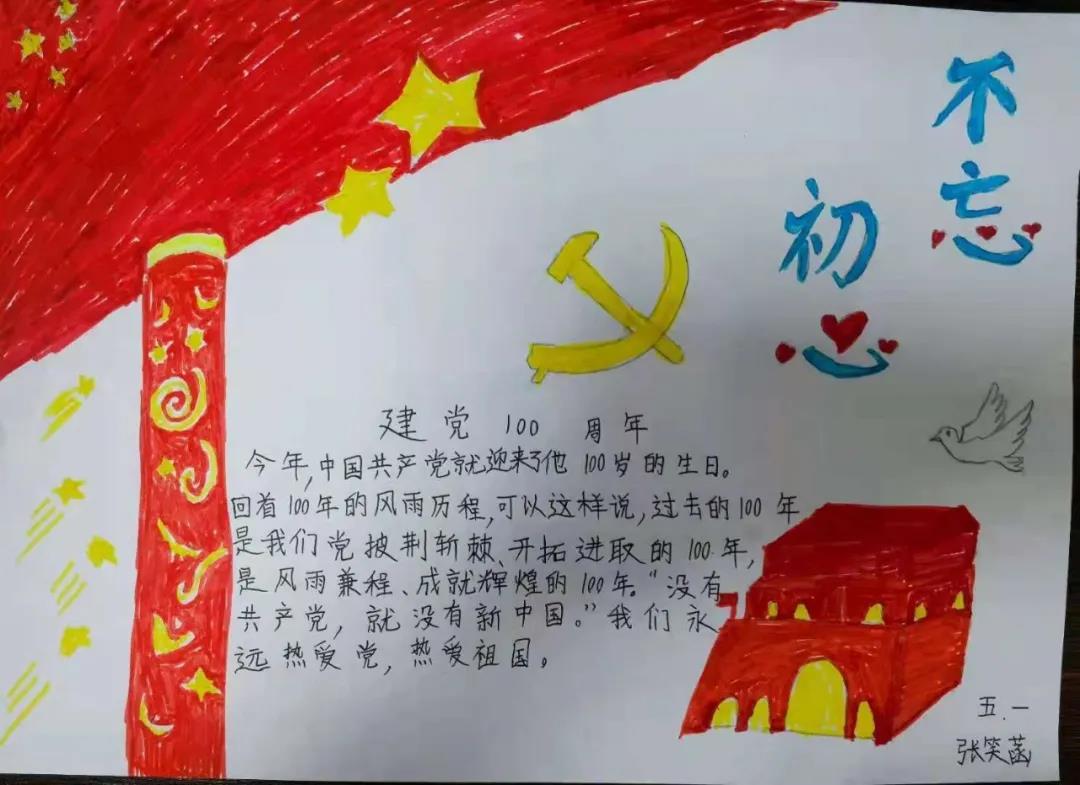 不忘
初心
建党 100 周年
今年,中国共产党就迎来了他 100岁的生日。
回首100年的风雨历程,可以这样说,过去的100年
是我们党披荆斩棘、开拓进取的100年,
是风雨兼程、成就辉煌的100年。“没有
共产党,就没有新中国。”我们永
远热爱党,热爱祖国。
五.一
张笑菡